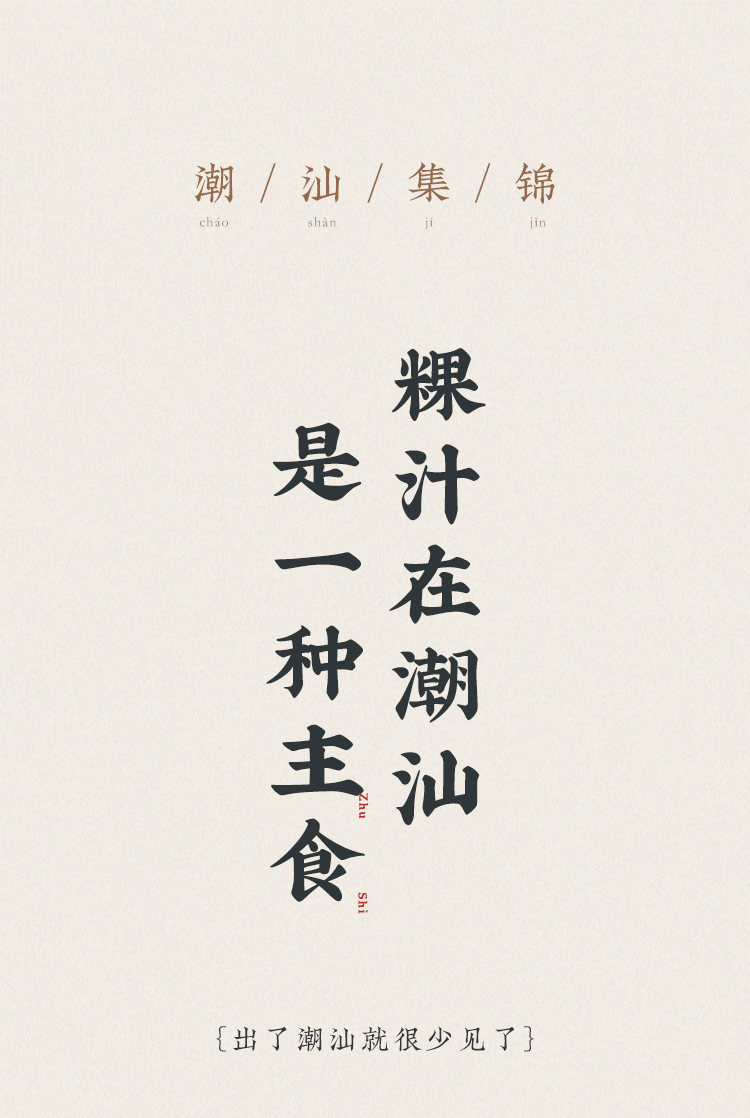 潮/汕/集/锦
cháo shàn jí jǐn
粿汁在潮汕
是一种主食
Zhu Shi
{出了潮汕就很少见了}